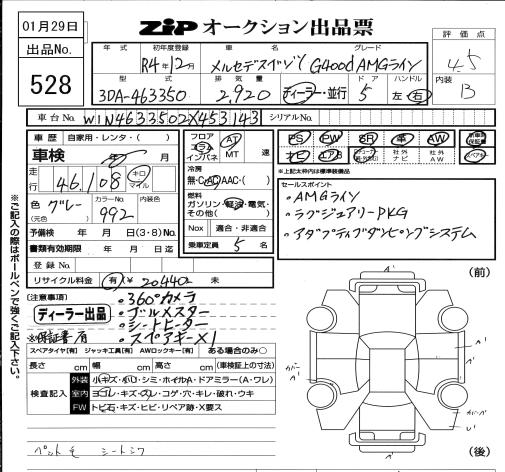 01月29日
ZIP オークション出品票
出品No.
528
評価点
4.5
内装
B
年式 初年度登録 車名 グレード
R4年12月 メルセデスベンツ G400d AMGライン
型式 排気量 ドア ハンドル
3DA-463350 2,920 ディーラー・並行 5 左 右
車台No. W1N4633502X453143 シリアルNo.
車歴 自家用・レンタ・( )
車検 年 月
走行 46,108 キロ マイル
色 グレー (元色) カラーNo. 992 内装色
予備検 年 月 日 (3・8)No.
書類有効期限 年 月 日 迄
登録No.
リサイクル料金 有 ¥20440 未
フロア コラム インパネ AT MT 速
冷房
無・C・AC・AAC・( )
燃料
ガソリン・軽油・電気・その他( )
Nox 適合・非適合
乗車定員 5 名
PS PW SR 革 AW 新車時保証書
ナビ エアB 社外ナビ 社外AW
※上記太枠内は標準装備品
セールスポイント
・AMGライン
・ラグジュアリーPKG
・アダプティブダンピングシステム
[注意事項]
ディーラー出品
※保証書/有
・360°カメラ
・ブルメスター
・シートヒーター
・スペアキー×1
スペアタイヤ[有] ジャッキ工具[有] AWロックキー[有] ある場合のみ○
長さ cm 幅 cm 高さ cm (車検証上の寸法)
検査記入
外装 小キズ・凹リ・シミ・ホイルA・ドアミラー(A・ワレ)
室内 ヨゴレ・キズ・スレ・コゲ・穴・キレ・破れ・ウキ
FW トビ石・キズ・ヒビ・リペア跡・X要ス
シートシワ
※ご記入の際はボールペンで強くご記入下さい。
(前)
(後)